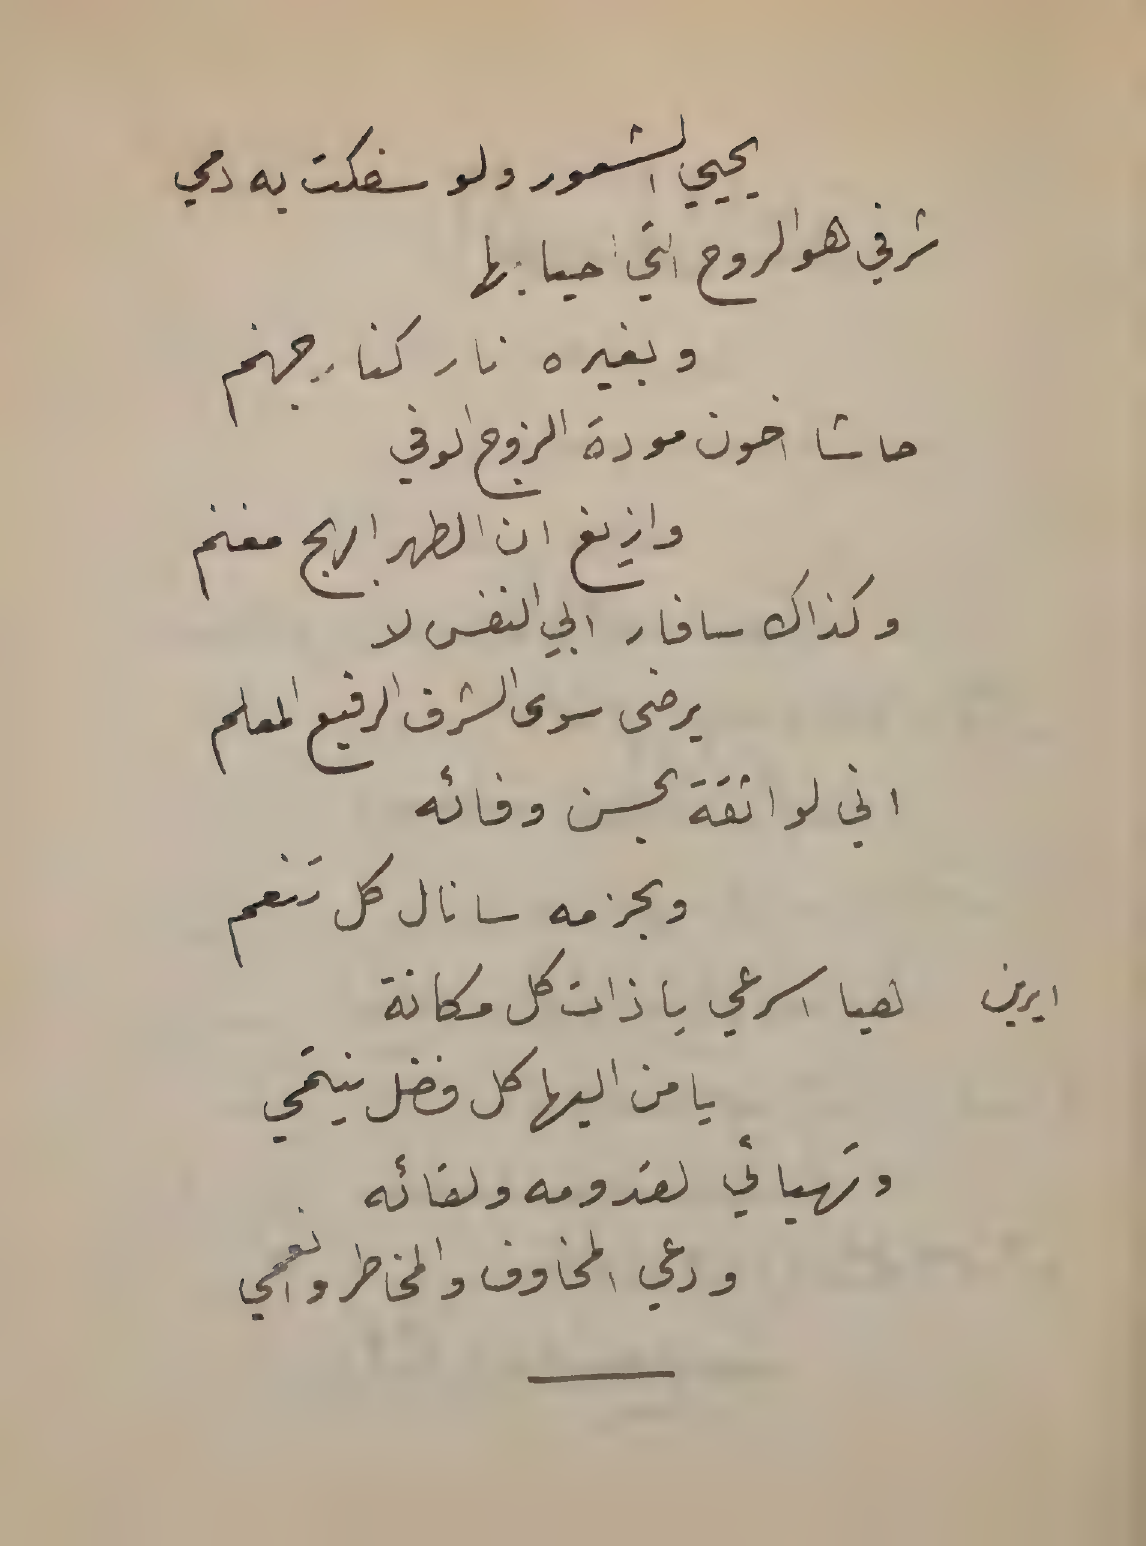 يحيي الشعور ولو سفكت به دمي
شرفي هو الروح التي احيا بها
وبغيره نار كنار جهنم
حاشا اخون مودة الزوج الوفي
وازيغ ان الطهر اربح مغنم
وكذاك سافار ابي النفس لا
يرضى سوى الشرف الرفيع المعلم
اني لواثقة بحسن وفائه
وبحزمه سانال كل تنعم
ايرين لهيا اسرعي يا ذات كل مكانة
يا من اليها كل فضل ينتمي
وتهيائي لقدومه ولقائه
ودعي المخاوف والمخاطر وانعمي